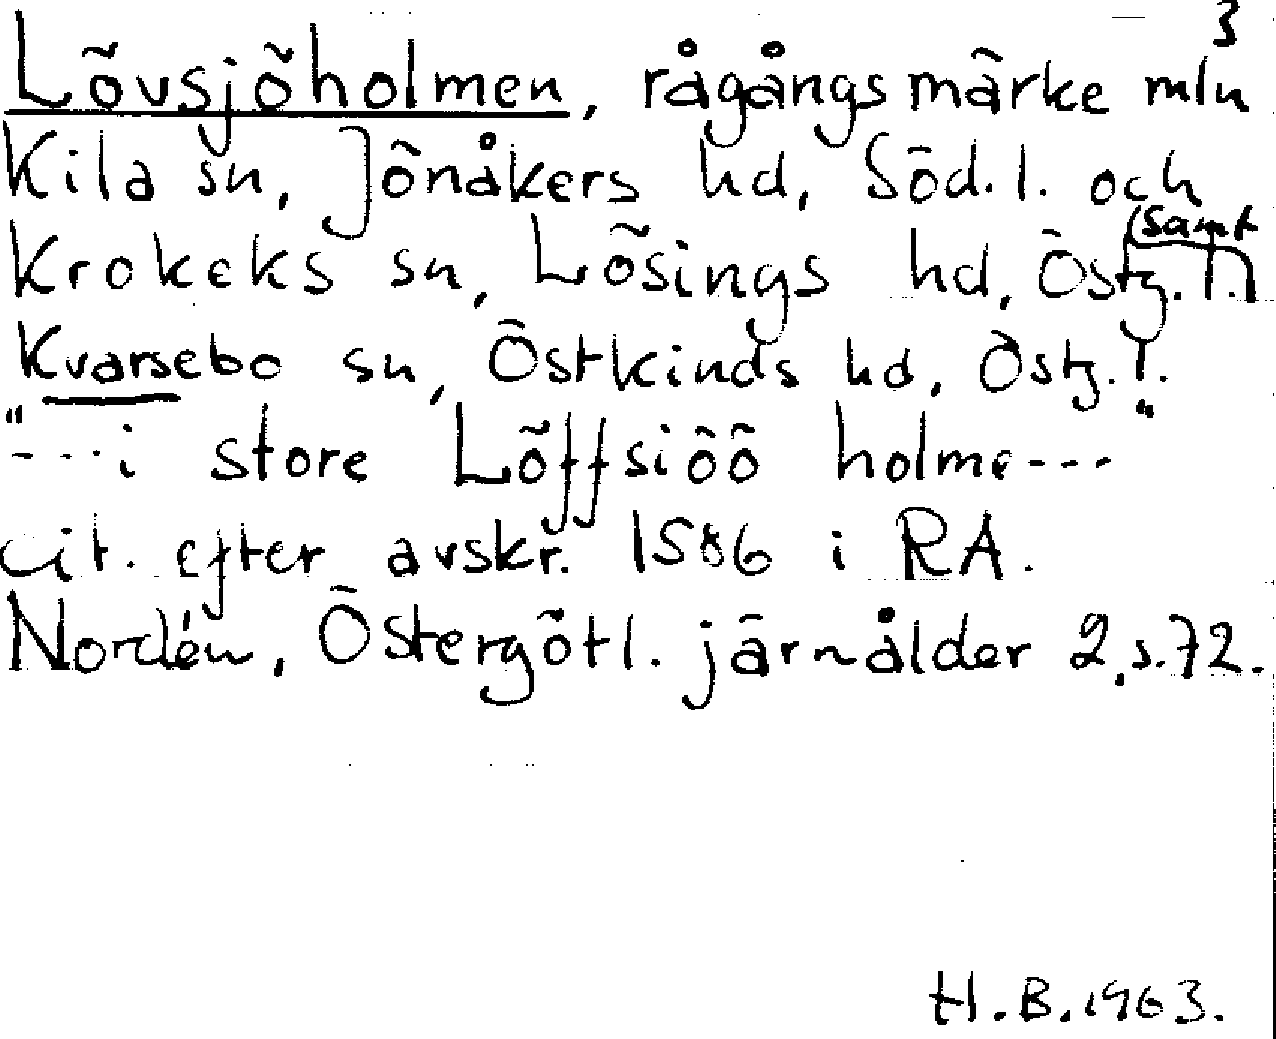 3
Lövsjöholmen, rågångsmärke mln
Kila sn, Jönåkers hd, Söd. l. och
Krokeks sn, Lösings hd, Östg. l. (samt
Kvarsebo sn, Östkinds hd, Östg. l.)
"---i store Löffsiöö holme---"
cit. efter avskr. 1586 i RA.
Nordén, Östergötl. järnålder 2, s. 72.
H.B. 1963.